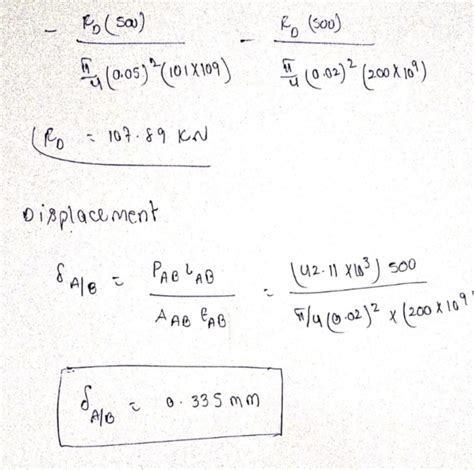 - R_D (500) / π/4 (0.05)² (101×109) - R_D (500) / π/4 (0.02)² (200×10⁹)
R_D = 107.89 KN
Displacement
δ_A/B = P_AB L_AB / A_AB E_AB = (42.11 ×10³) 500 / π/4 (0.02)² × (200×10⁹
δ_A/B = 0.335 mm